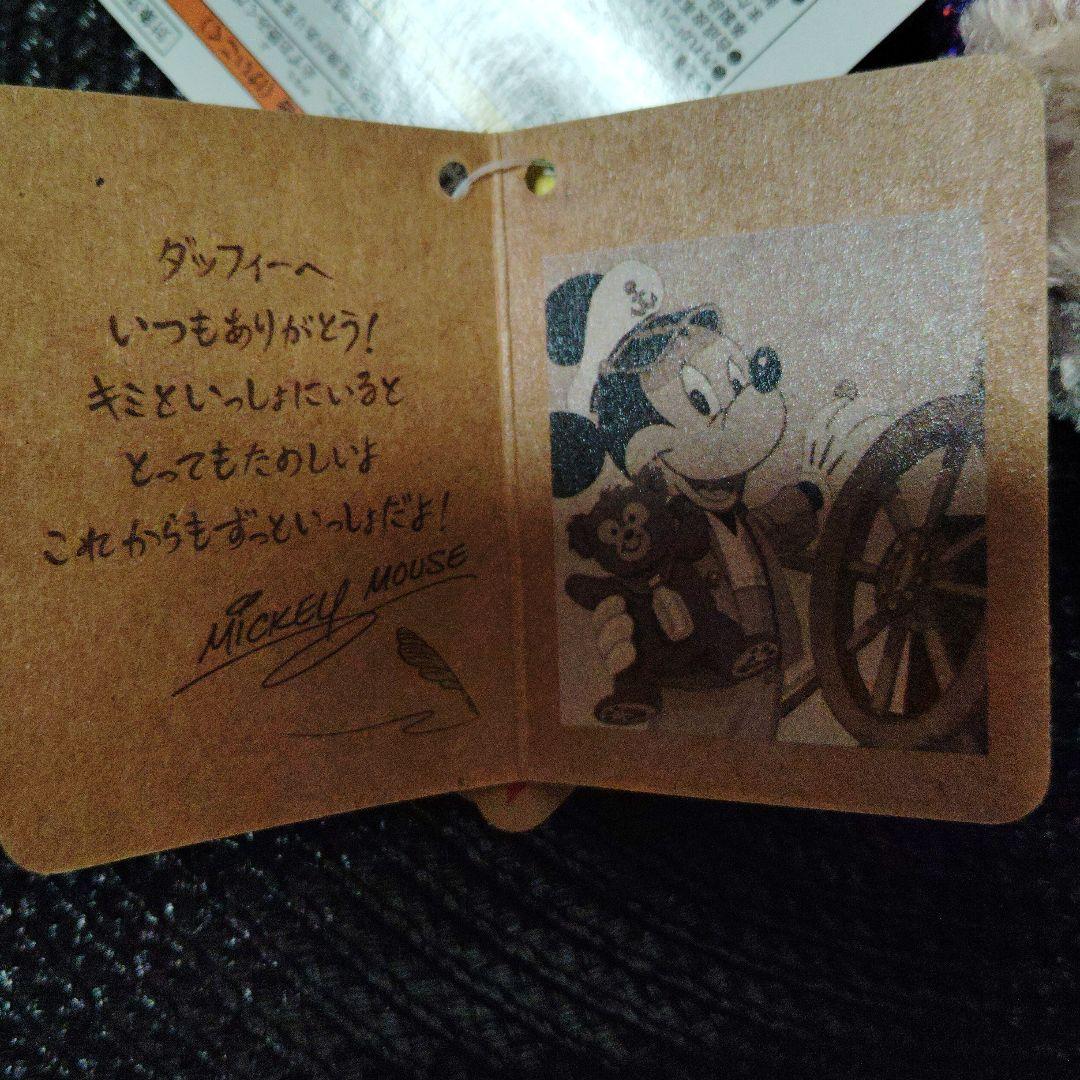 ダッフィーへ
いつもありがとう!
キミといっしょにいると
とってもたのしいよ
これからもずっといっしょだよ!
MICKEY MOUSE